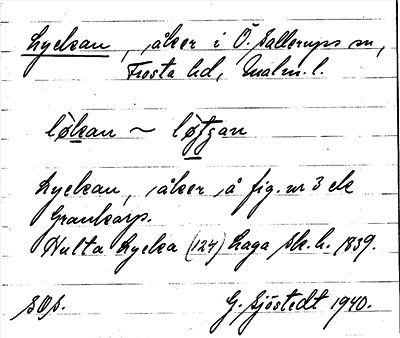 Lyckan, åker i Ö. Sallerups sn,
Frosta hd, Malm. l.
løkan ~ løtgan
Lyckan, åker å fig. nr 3 ek
Grankarp.
Hulta Lycka (124) Laga sk. h. 1839.
G. Sjöstedt 1940.